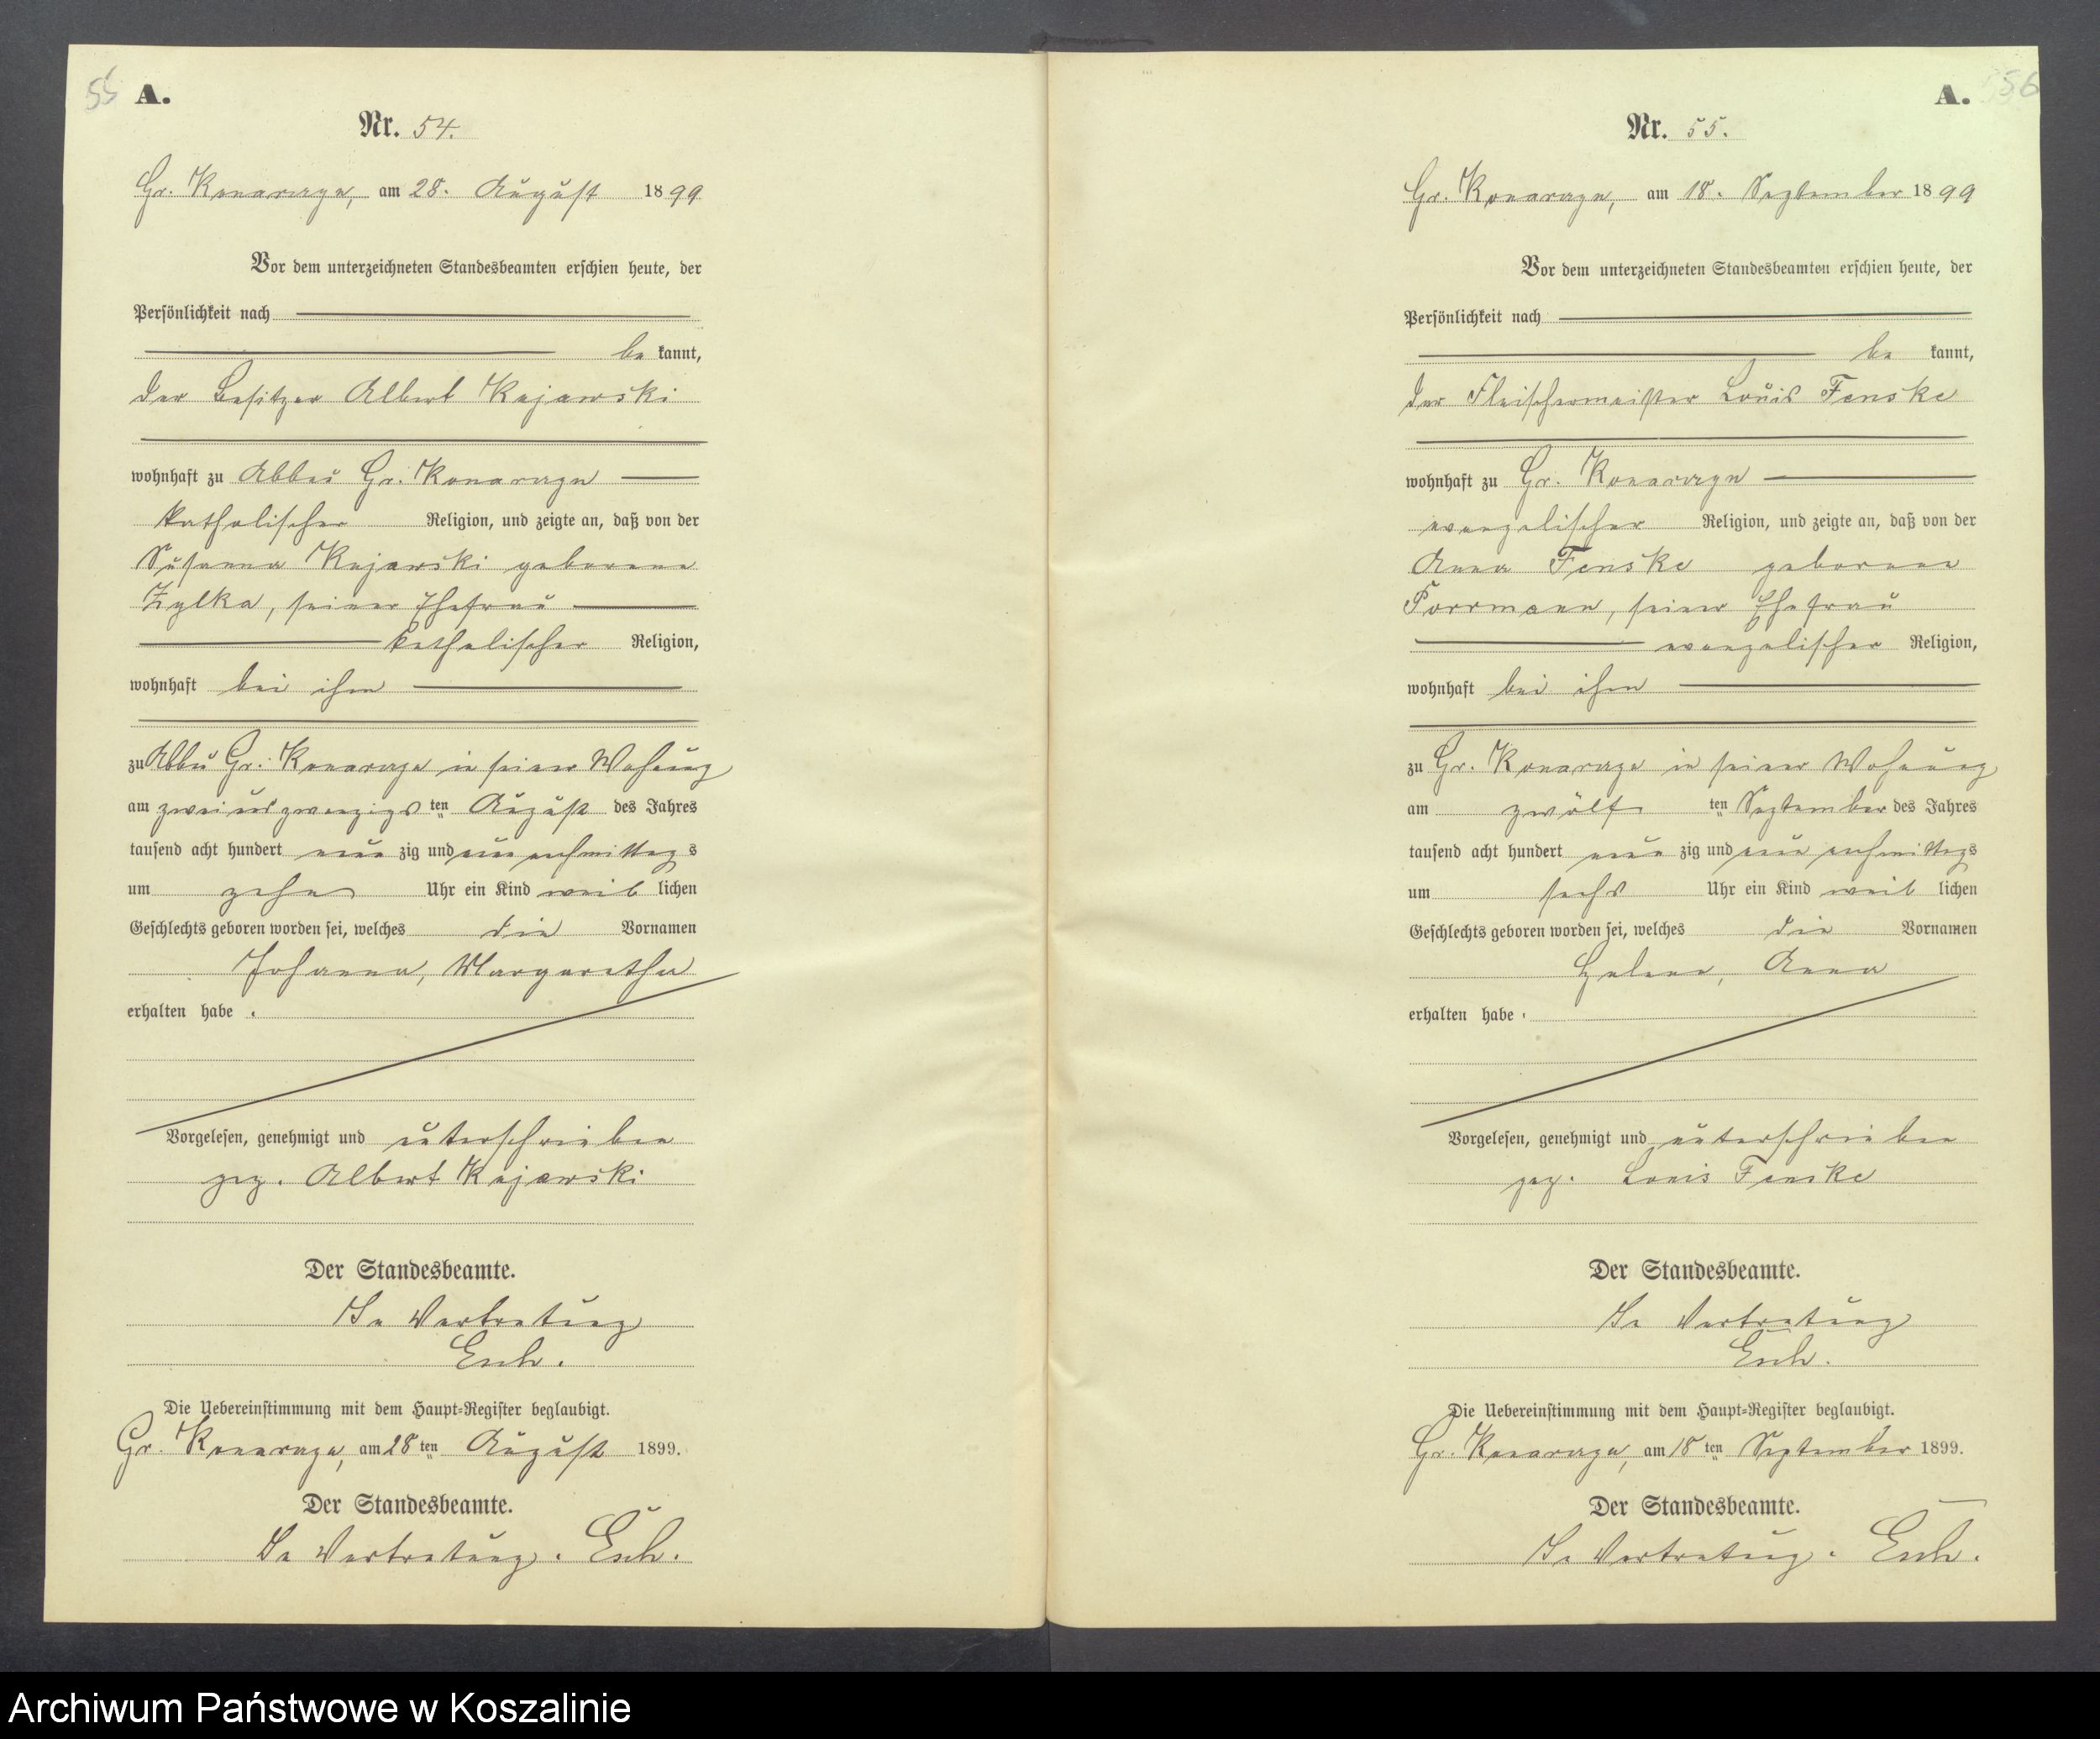 55 A.
Nr. 54.
Gr. Konarczyn, am 28. August 1899
Vor dem unterzeichneten Standesbeamten erschien heute, der
Persönlichkeit nach
be kannt,
der Besitzer Albert Kujawski
wohnhaft zu Abbau Gr. Konarczyn
katholischer Religion, und zeigte an, daß von der
Susanna Kujawski geborene
Zylka, seiner Ehefrau
katholischer Religion,
wohnhaft bei ihm
zu Abbau Gr. Konarczyn in seiner Wohnung
am zweiundzwanzigsten August des Jahres
tausend acht hundert neun zig und neun nachmittags
um zehn Uhr ein Kind weib lichen
Geschlechts geboren worden sei, welches die Vornamen
Johanna, Margaretha
erhalten habe.
Vorgelesen, genehmigt und unterschrieben
gez. Albert Kujawski
Der Standesbeamte.
In Vertretung
Esch.
Die Uebereinstimmung mit dem Haupt=Register beglaubigt.
Gr. Konarczyn, am 28 ten August 1899.
Der Standesbeamte.
In Vertretung. Esch.
A. 56
Nr. 55.
Gr. Konarczyn, am 18. September 1899
Vor dem unterzeichneten Standesbeamten erschien heute, der
Persönlichkeit nach
be kannt,
der Fleischermeister Louis Fenske
wohnhaft zu Gr. Konarczyn
evangelischer Religion, und zeigte an, daß von der
Anna Fenske geborene
Porrmann, seiner Ehefrau
evangelischer Religion,
wohnhaft bei ihm
zu Gr. Konarczyn in seiner Wohnung
am zwölf ten September des Jahres
tausend acht hundert neun zig und neun nachmittags
um sechs Uhr ein Kind weib lichen
Geschlechts geboren worden sei, welches die Vornamen
Helene, Anna
erhalten habe.
Vorgelesen, genehmigt und unterschrieben
gez. Louis Fenske
Der Standesbeamte.
In Vertretung
Esch.
Die Uebereinstimmung mit dem Haupt=Register beglaubigt.
Gr. Konarczyn, am 18 ten September 1899.
Der Standesbeamte.
In Vertretung. Esch.
Archiwum Państwowe w Koszalinie